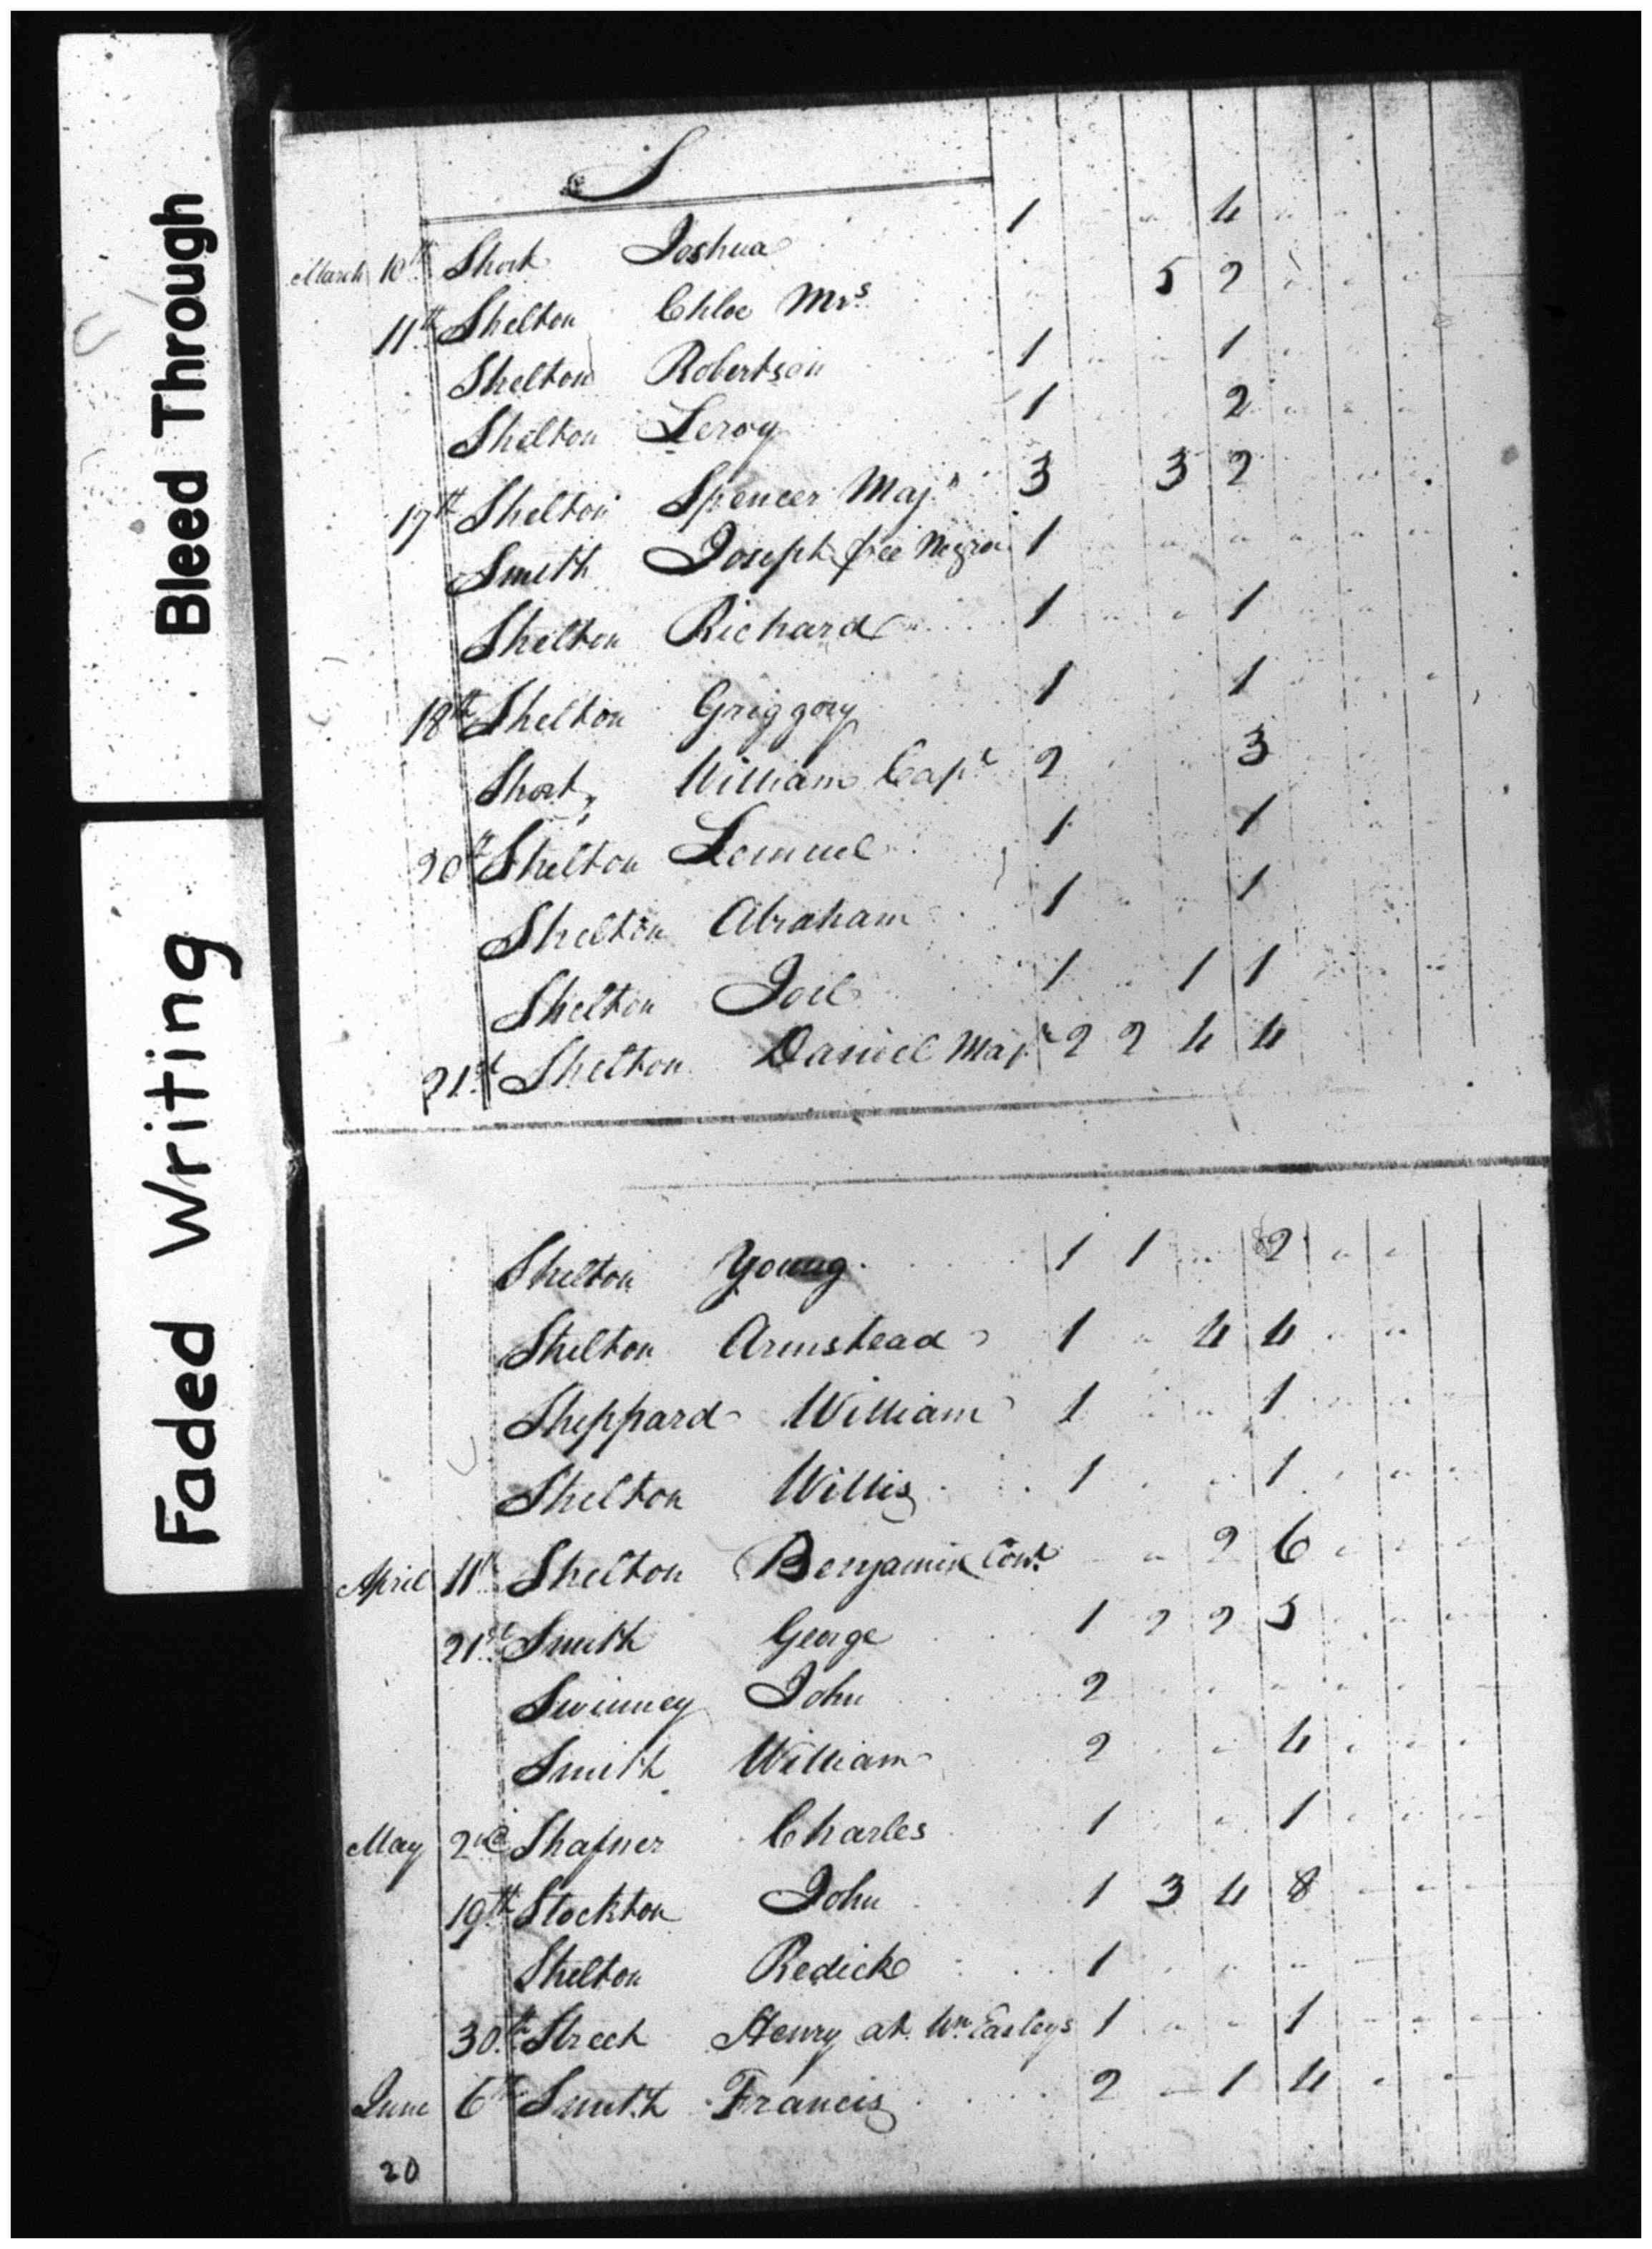 Bleed Through
Faded Writing
S
March 10th Short Joshua 1 " 4 " " "
11th Shelton Chloe Mrs 5 2
Shelton Robertson 1 " " 1
Shelton Leroy 1 2
17th Shelton Spencer Majr 3 3 2
Smith Joseph free Negroe 1
Shelton Richard 1 " 1
18th Shelton Griggory 1 1
Short, William Capt 2 3
20th Shelton Lemuel 1 1
Shelton Abraham 1 1
Shelton Joel 1 1 1
21st Shelton Daniel Majr 2 2 4 4
Shelton Young 1 1 " 2 " "
Shelton Armstead 1 " 4 4 " "
Sheppard William 1 " 1
Shelton Willis 1 1
April 11th Shelton Benjamin Const " 2 6
21st Smith George 1 2 2 5
Swinney John 2
Smith William 2 " 4
May 2nd Shafner Charles 1 1
19th Stockton John 1 3 4 8
Shelton Redick 1
30th Street Henry at Wm Easleys 1 " " 1
June 6th Smith Francis 2 1 4
20